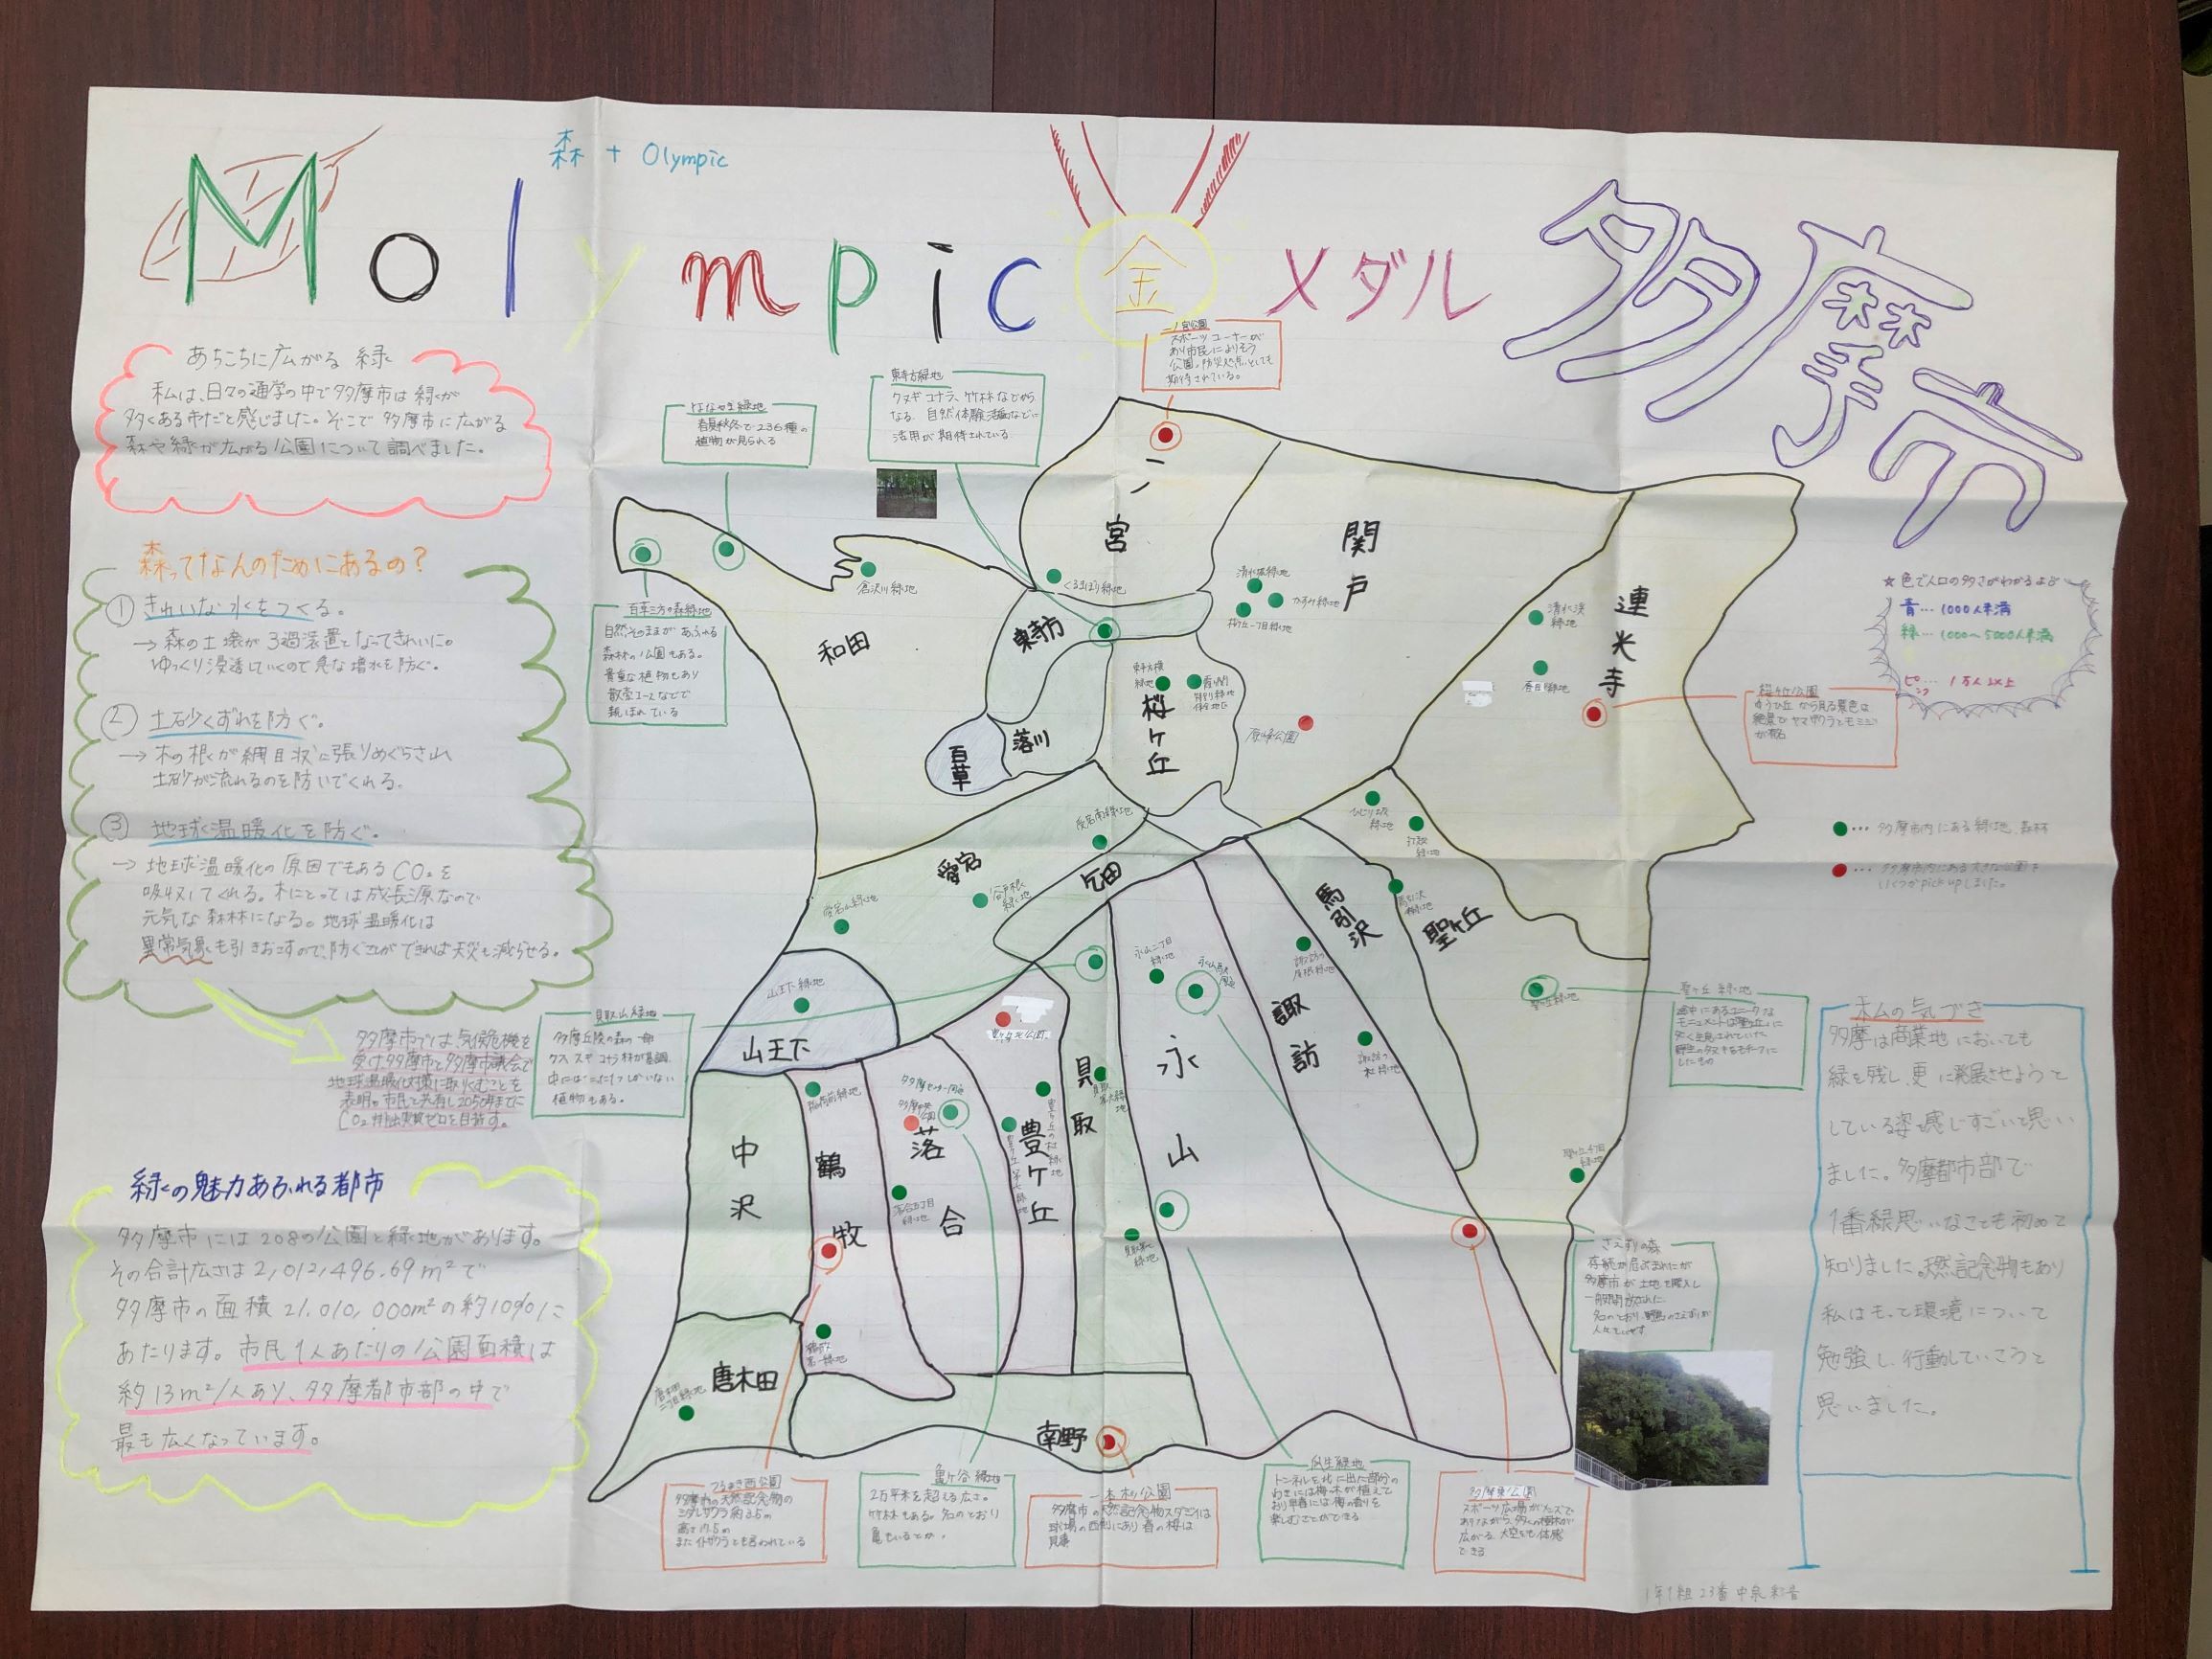 森 + Olympic
Molympic 金 メダル 多摩市
あちこちに広がる 緑
私は、日々の通学の中で多摩市は緑が
多くある市だと感じました。そこで 多摩市に広がる
森や緑が広がる公園について調べました。
森ってなんのためにあるの?
① きれいな水をつくる。
→ 森の土壌が ろ過装置となってきれいに。
ゆっくり浸透していくので急な増水を防ぐ。
② 土砂くずれを防ぐ。
→ 木の根が網目状に張りめぐらされ
土砂が流れるのを防いでくれる。
③ 地球温暖化を防ぐ。
→ 地球温暖化の原因でもあるCO₂を
吸収してくれる。木にとっては成長源なので
元気な森林になる。地球温暖化は
異常気象も引きおこすので、防ぐことができれば天災も減らせる。
多摩市では気候危機を
受け多摩市と多摩市議会で
地球温暖化対策に取りくむことを
表明。市民と共有し2050年までに
CO₂排出実質ゼロを目指す。
緑の魅力あふれる都市
多摩市には208の公園と緑地があります。
その合計広さは2,012,496.69m²で
多摩市の面積21,010,000m²の約10%に
あたります。市民1人あたりの公園面積は
約13m²/人あり、多摩都市部の中で
最も広くなっています。
ななやま緑地
春夏秋冬で236種の
植物が見られる
東寺方緑地
クヌギコナラ、竹林などから
なる。自然体験活動などに
活用が期待されている
一ノ宮公園
スポーツコーナーが
あり市民によりそう
公園。防災拠点としても
期待されている。
百草三方の森緑地
自然そのままがあふれる
森林の公園もある。
貴重な植物もあり
散歩コースなどで
親しまれている
一ノ宮
関戸
連光寺
和田
東寺方
落川
百草
桜ヶ丘
愛宕
乞田
馬引沢
聖ヶ丘
山王下
中沢
鶴牧
落合
豊ヶ丘
貝取
永山
諏訪
唐木田
南野
倉沢川緑地
くるまぼり緑地
かすみ緑地
桜ヶ丘一丁目緑地
春日緑地
原峰公園
愛宕南緑地
愛宕山緑地
谷戸根緑地
ひじり坂緑地
打越緑地
馬引沢緑地
山王下緑地
永山二丁目緑地
聖ヶ丘緑地
落合五丁目緑地
唐木田二丁目緑地
★色で人口の多さがわかるよ
青…1000人未満
緑…1000〜5000人未満
ピンク…1万人以上
桜ヶ丘公園
ゆうひの丘から見る景色は
絶景でヤマザクラとモミジ
が有名
●… 多摩市内にある緑地、森林
●… 多摩市内にある大きな公園を
いくつかpick upしました。
貝取山緑地
多摩丘陵の森の一部
クヌギコナラ林が基調。
中にはここだけしかいない
植物もある。
聖ヶ丘緑地
途中にあるユニークな
モニュメントは聖ヶ丘に
したもの
さえずりの森
存続が危ぶまれたが
多摩市が土地を購入し
一般開放された。
名のとおり、野鳥のさえずりが
私の気づき
多摩は商業地においても
緑を残し、更に発展させようと
している姿を感じすごいと思い
ました。多摩都市部で
1番緑思いなことも初めて
知りました。天然記念物もあり
私はもっと環境について
勉強し、行動していこうと
思いました。
つるまき西公園
多摩市の天然記念物の
シダレザクラ約3.5m
高さ17.5m
またイトザクラとも言われている
亀ヶ谷緑地
2万平米を超える広さ。
竹林もある。名のとおり
亀もいるとか。
一本杉公園
多摩市の天然記念物スダジイは
球場の西側にあり春の桜は
見事
瓜生緑地
トンネルを北に出た部分の
わきには梅の木が植えて
おり早春には梅の香りを
楽しむことができる
多摩東公園
スポーツ広場がメインで
ありながら、多くの樹木が
広がる。大空をも体感
できる